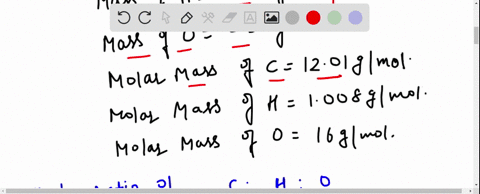 Mass of
Mass of O =
Molar Mass of C = 12.01 g/mol.
Molar Mass of H = 1.008 g/mol.
Molar Mass of O = 16 g/mol.
ratio of C : H : O